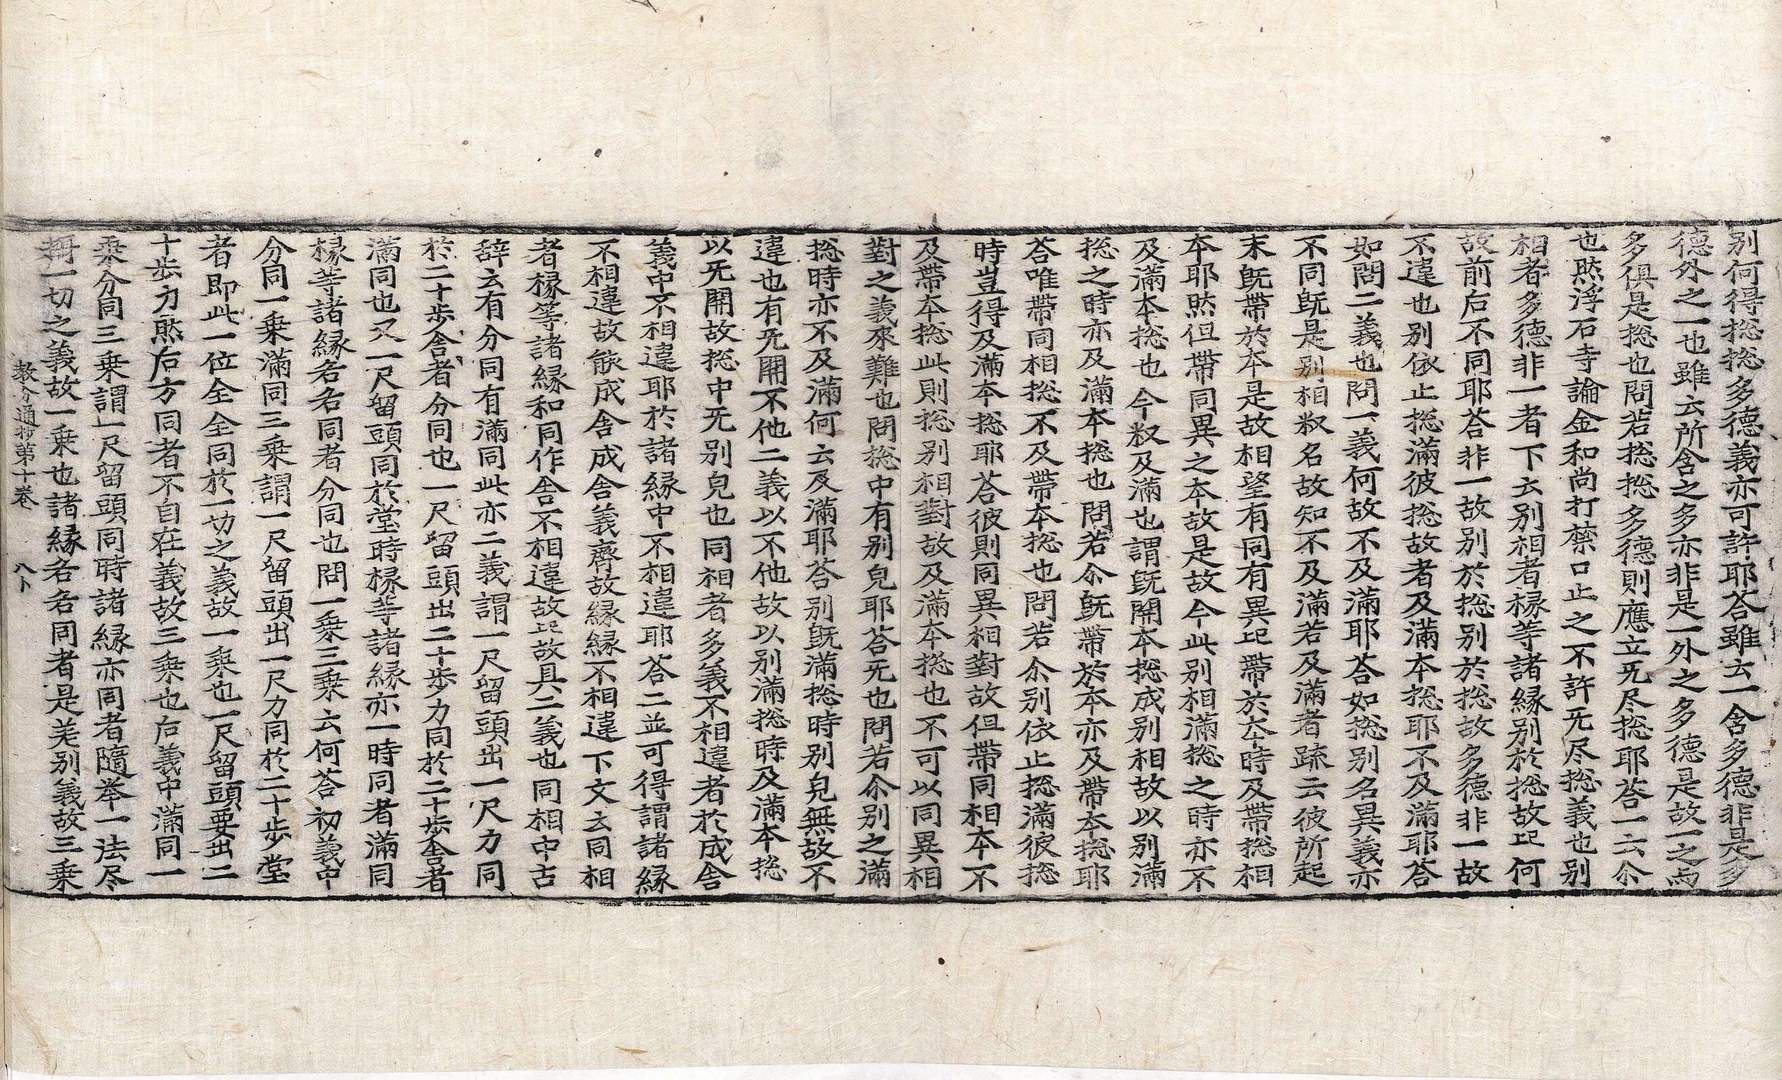 別何得捴捴多德義亦可許耶荅雖云一含多德非是多
德外之一也雖云所含之多亦非是一外之多德是故一之而
多俱是捴也問若捴捴多德則應立旡尽捴耶荅一云尒
也㸃浮石寺論金和尚打禁口止之不許旡尽捴義也別
相者多德非一者下云別相者椽等諸緣別於捴故𠮷何
故前后不同耶荅非一故別於捴別於捴故多德非一故
不違也別依止捴滿彼捴故者及滿本捴耶不及滿耶荅
如問二義也問一義何故不及滿耶荅如捴別名異義亦
不同旣是別相㪅名故知不及滿若及滿者䟽云彼所起
末旣帶於本是故相望有同有異𠮷帶於本時及帶捴相
本耶然但帶同異之本故是故今此別相滿捴之時亦不
及滿本捴也今㪅及滿也謂旣開本捴成別相故以別滿
捴之時亦及滿本捴也問若尒旣帶於本亦及帶本捴耶
荅唯帶同相捴不及帶本捴也問若尒別依止捴滿彼捴
時豈得及滿本捴耶荅彼則同異相對故但帶同相本不
及帶本捴此則捴別相對故及滿本捴也不可以同異相
對之義來難也問捴中有別皃耶荅旡也問若尒別之滿
捴時亦不及滿何云及滿耶荅別旣滿捴時別皃無故不
違也有旡開不他二義以不他故以別滿捴時及滿本捴
以旡開故捴中旡別皃也同相者多義不相違者於成舍
義中不相違耶於諸緣中不相違耶荅二並可得謂諸緣
不相違故能成舍成舍義齊故緣緣不相違下文云同相
者椽等諸緣和同作舍不相違故𠮷故具二義也同相中古
辞云有分同有滿同此亦二義謂一尺留頭出一尺力同
於二十步舍者分同也一尺留頭出二十步力同於二十步舍者
滿同也又一尺留頭同於堂時椽等諸緣亦一時同者滿同
椽等諸緣各各同者分同也問一乗三乗云何荅初義中
分同一乗滿同三乗謂一尺留頭出一尺力同於二十步堂
者即此一位全全同於一切之義故一乗也一尺留頭要出二
十步力然后方同者不自在義故三乗也后義中滿同一
乗分同三乗謂一尺留頭同時諸緣亦同者隨举一法尽
攝一切之義故一乗也諸緣各各同者是差別義故三乗
教分通抄第十卷　八卜